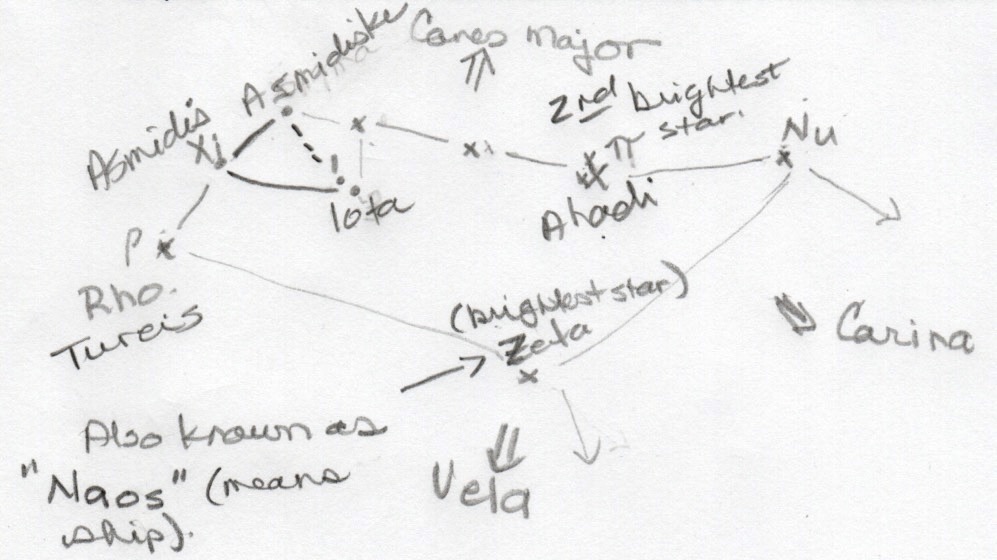 Canes Major
Asmidiske
2nd brightest
π star.
Nu
Asmidis
Xi
Iota
Ahadi
ρ
Rho.
Tureis
(brightest star)
Zeta
Carina
Also known as
"Naos" (means
ship).
Vela